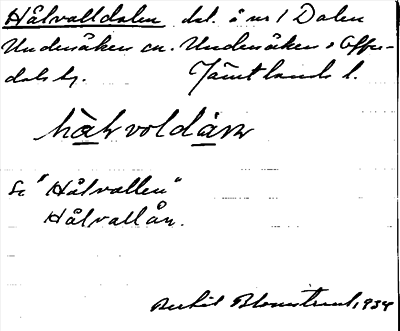 Hålvalldalen del. å nr 1 Dalen
Undersåker sn. Undersåkers o Offer-
dals tg. Jämtlands l.
hålvoldárn
Se "Hålvallen"
Hålvallån.
Bertil Blomstrand, 1934